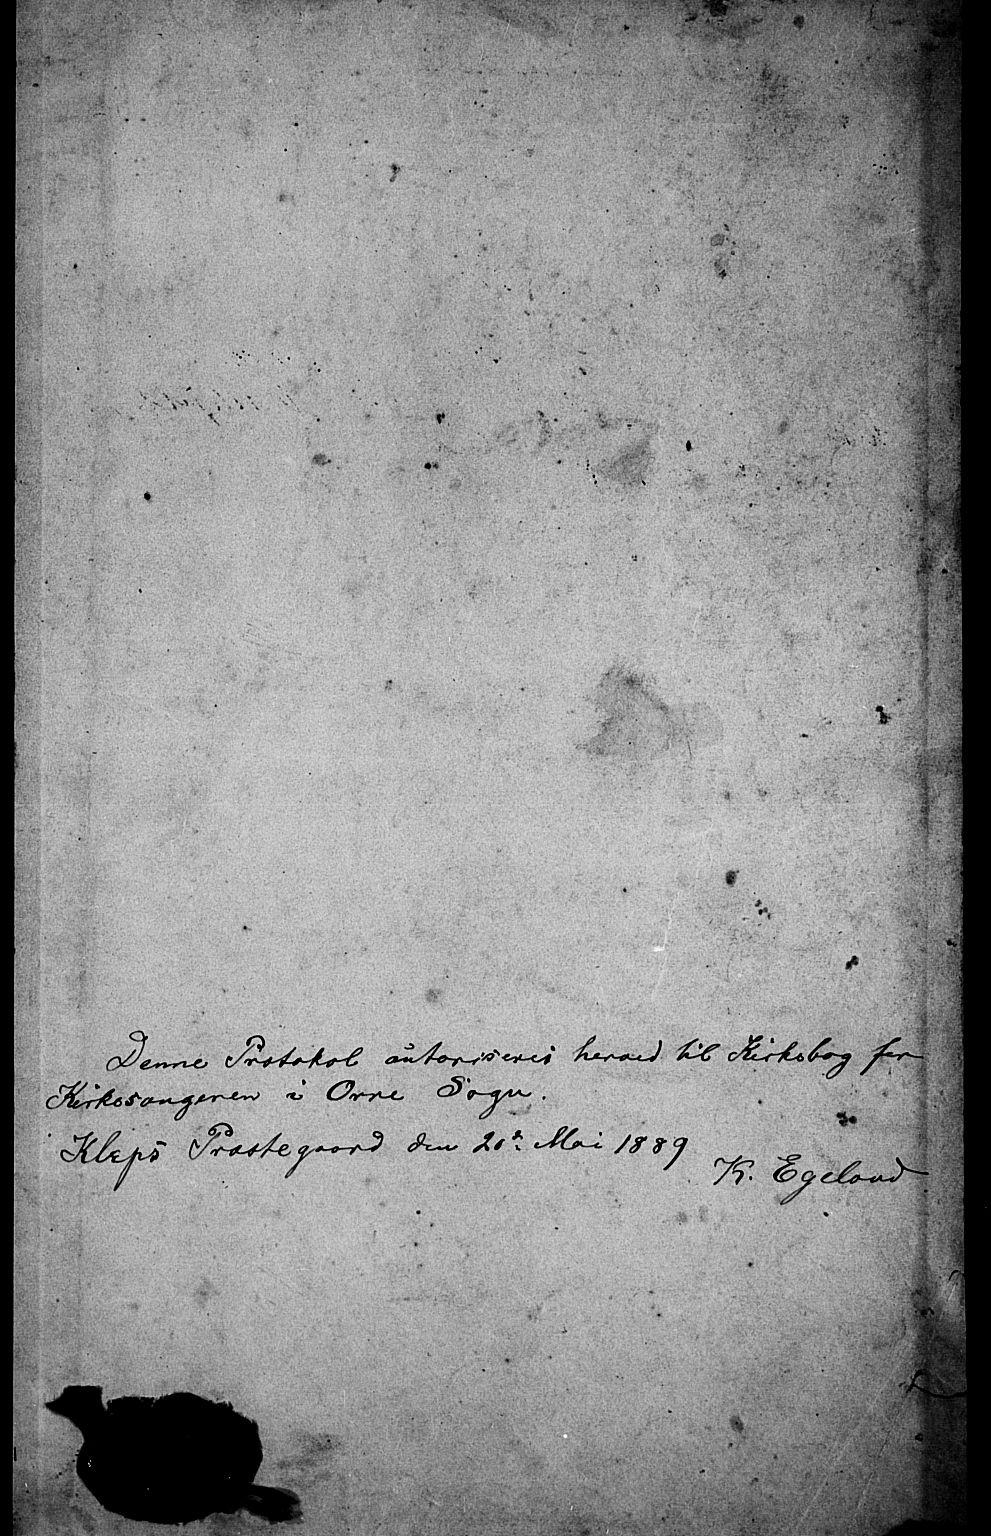 Denne Protokol autoriseres herved til Kirkebog for
Kirkesangeren i Orre Sogn.
Kleps Præstegaard den 20de Mai 1889
K. Egeland